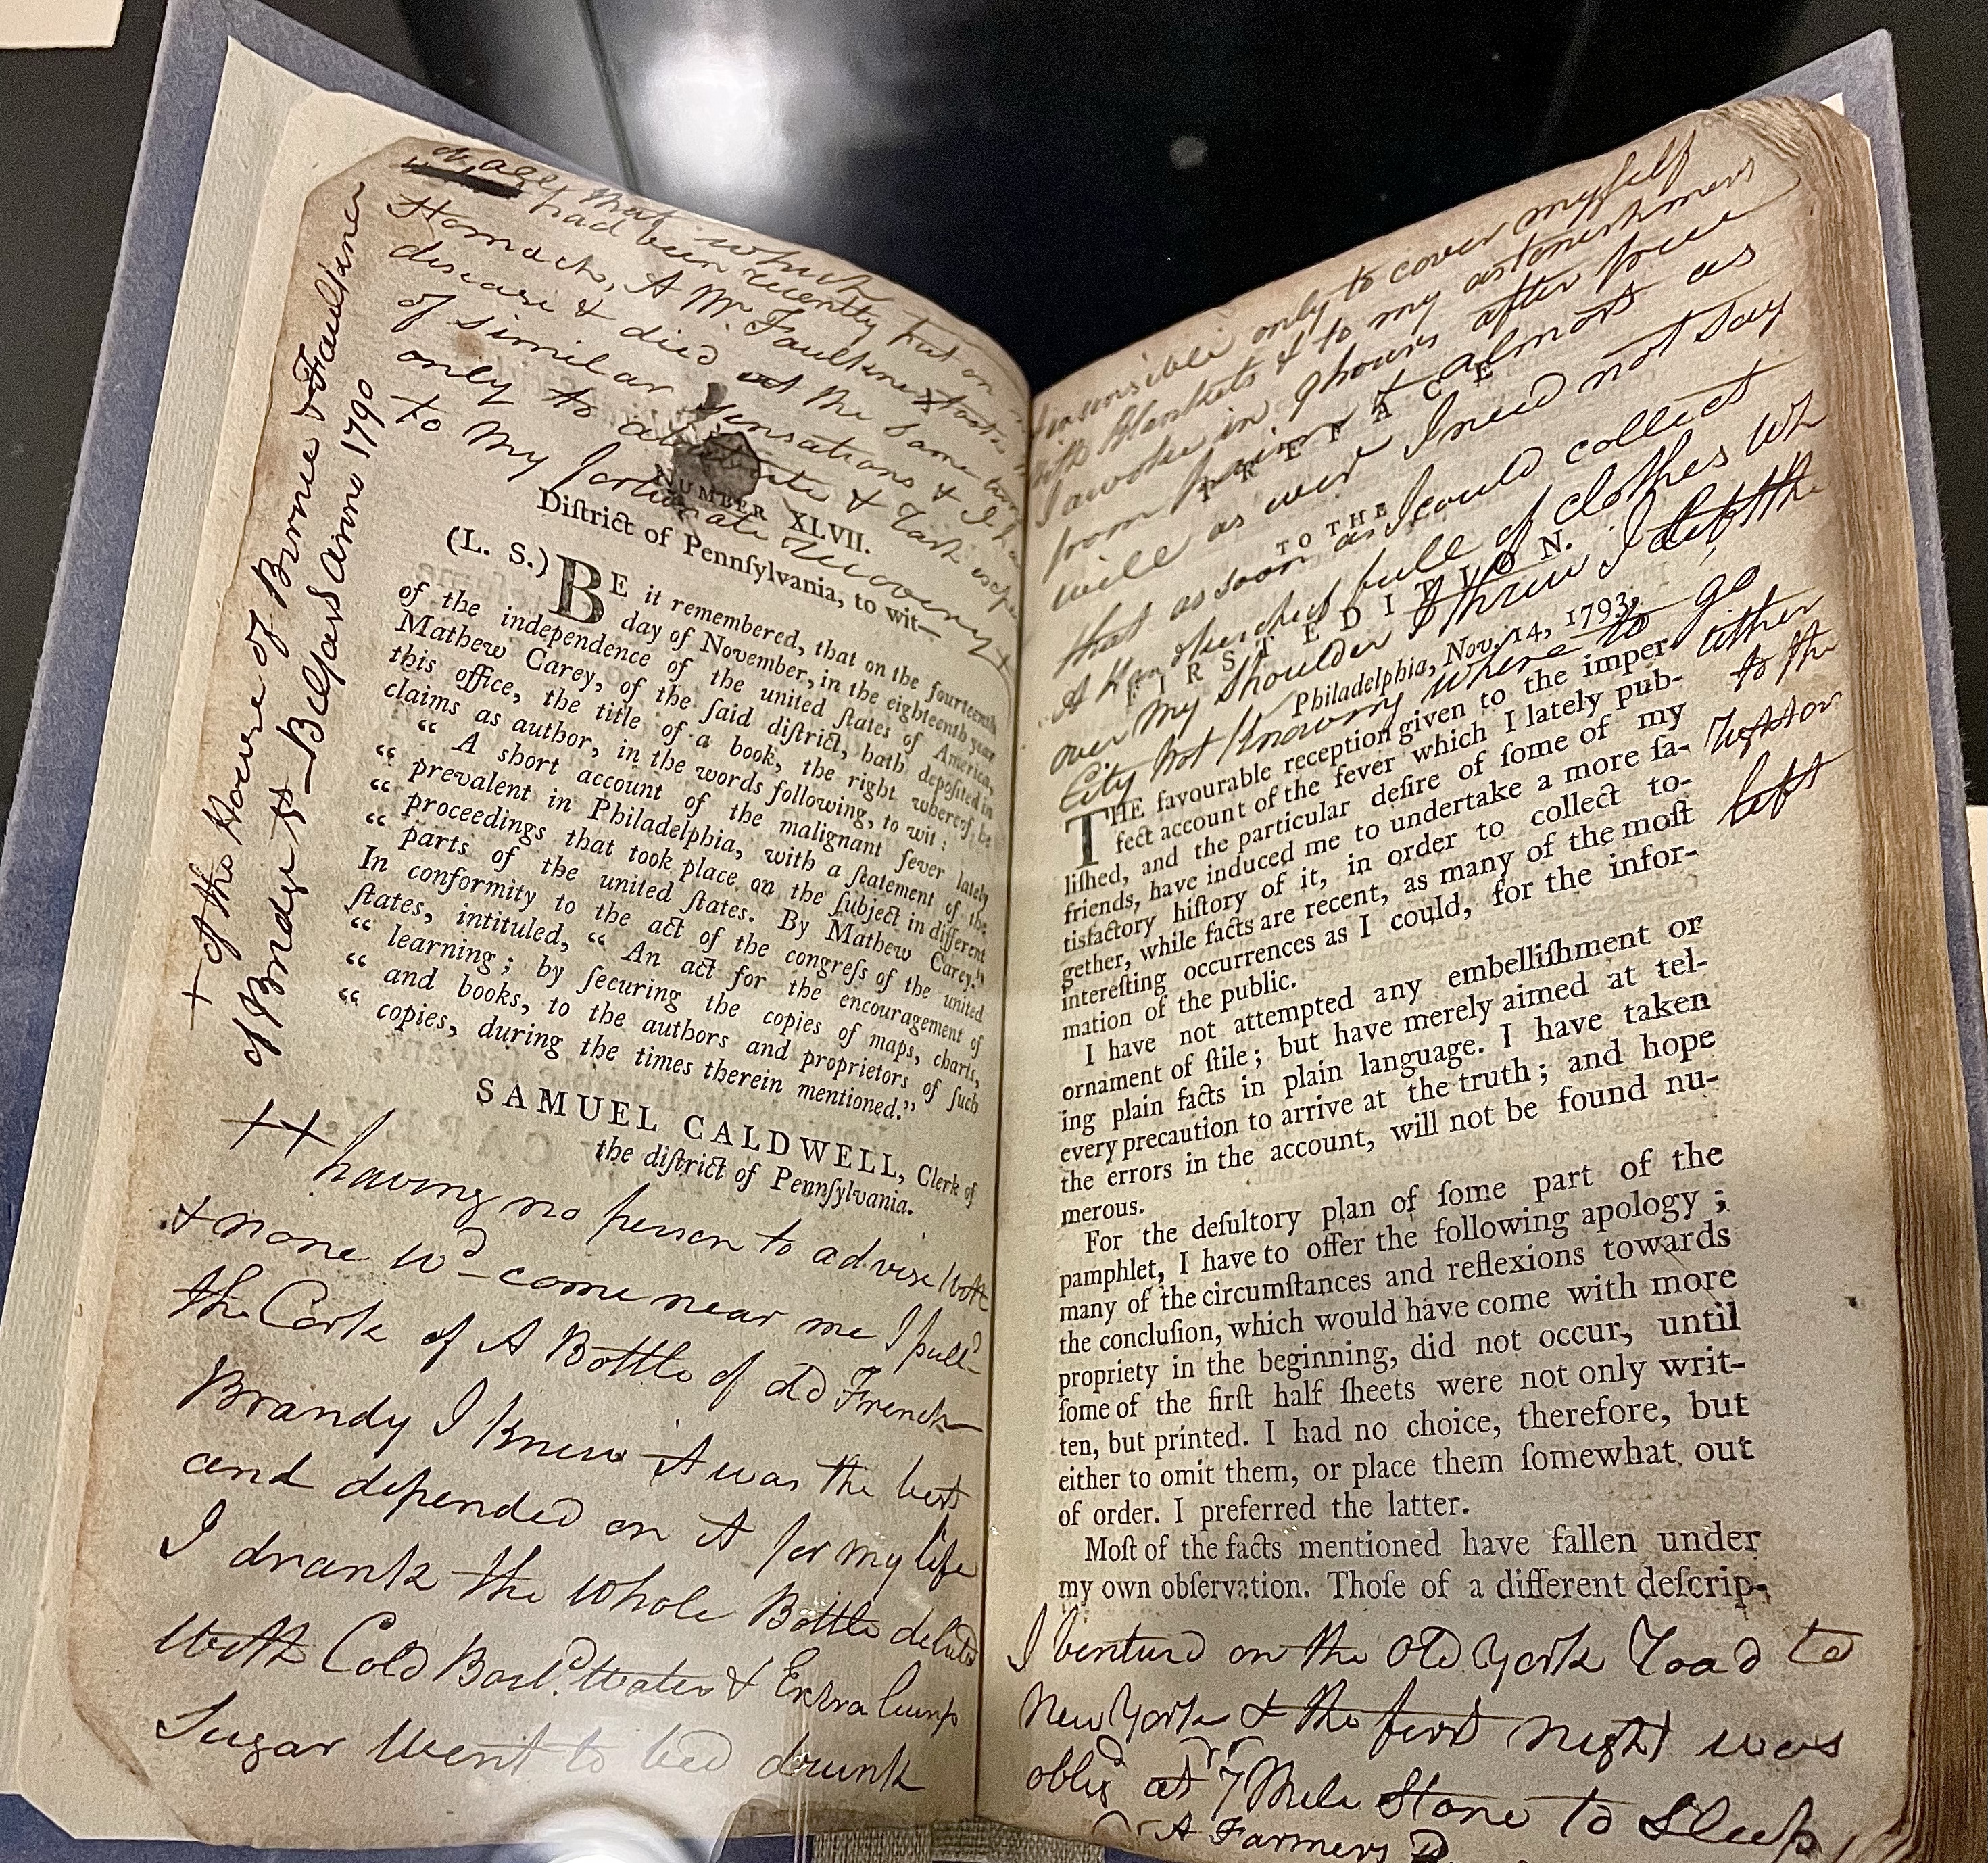 that which
had been recently put on
Stomach, A Mr. Faulkner took
disease & died at the same
of similar sensations &
only to &
to my fortunate recovery
+ of the House of Birnie & Faulkner
of Bridge St—Belfast anno 1790
NUMBER XLVII.
Diſtrict of Pennſylvania, to wit—
(L. S.) BE it remembered, that on the fourteenth
day of November, in the eighteenth year
of the independence of the united ſtates of America,
Mathew Carey, of the ſaid diſtrict, hath depoſited in
this office, the title of a book, the right whereof he
claims as author, in the words following, to wit:
“ A short account of the malignant fever lately
“ prevalent in Philadelphia, with a ſtatement of the
“ proceedings that took place on the ſubject in different
“ parts of the united ſtates. By Mathew Carey.”
In conformity to the act of the congreſs of the united
ſtates, intituled, “ An act for the encouragement of
“ learning; by ſecuring the copies of maps, charts,
“ and books, to the authors and proprietors of ſuch
“ copies, during the times therein mentioned.”
SAMUEL CALDWELL, Clerk of
the diſtrict of Pennſylvania.
++ having no person to advise with
& none wd come near me I pulld
the Cork of A Bottle of old French
Brandy I knew it was the best
and depended on it for my life
I drank the whole Bottle diluted
with Cold Boild. Water & Extra lump
Sugar went to bed drunk
& insensible only to cover myself
with Blankets & to my astonishment
I awoke in 9 hours after free
from pain & almost as
well as ever I need not say
that as soon as I could collect
A Handkerchief full of clothes wh
over my shoulder I threw I left the
City not knowing where to go
either
to the
right or
left
PREFACE
TO THE
FIRST EDITION.
Philadelphia, Nov. 14, 1793.
THE favourable reception given to the imper-
fect account of the fever which I lately pub-
liſhed, and the particular deſire of ſome of my
friends, have induced me to undertake a more ſa-
tisfactory hiſtory of it, in order to collect to-
gether, while facts are recent, as many of the moſt
intereſting occurrences as I could, for the infor-
mation of the public.
I have not attempted any embelliſhment or
ornament of ſtile; but have merely aimed at tel-
ling plain facts in plain language. I have taken
every precaution to arrive at the truth; and hope
the errors in the account, will not be found nu-
merous.
For the deſultory plan of ſome part of the
pamphlet, I have to offer the following apology;
many of the circumſtances and reflexions towards
the concluſion, which would have come with more
propriety in the beginning, did not occur, until
ſome of the firſt half ſheets were not only writ-
ten, but printed. I had no choice, therefore, but
either to omit them, or place them ſomewhat out
of order. I preferred the latter.
Moſt of the facts mentioned have fallen under
my own obſervation. Thoſe of a different deſcrip-
I venturd on the Old York Road to
New York & the first night was
obligd at 7 Mile Stone to Sleep
A Farmers